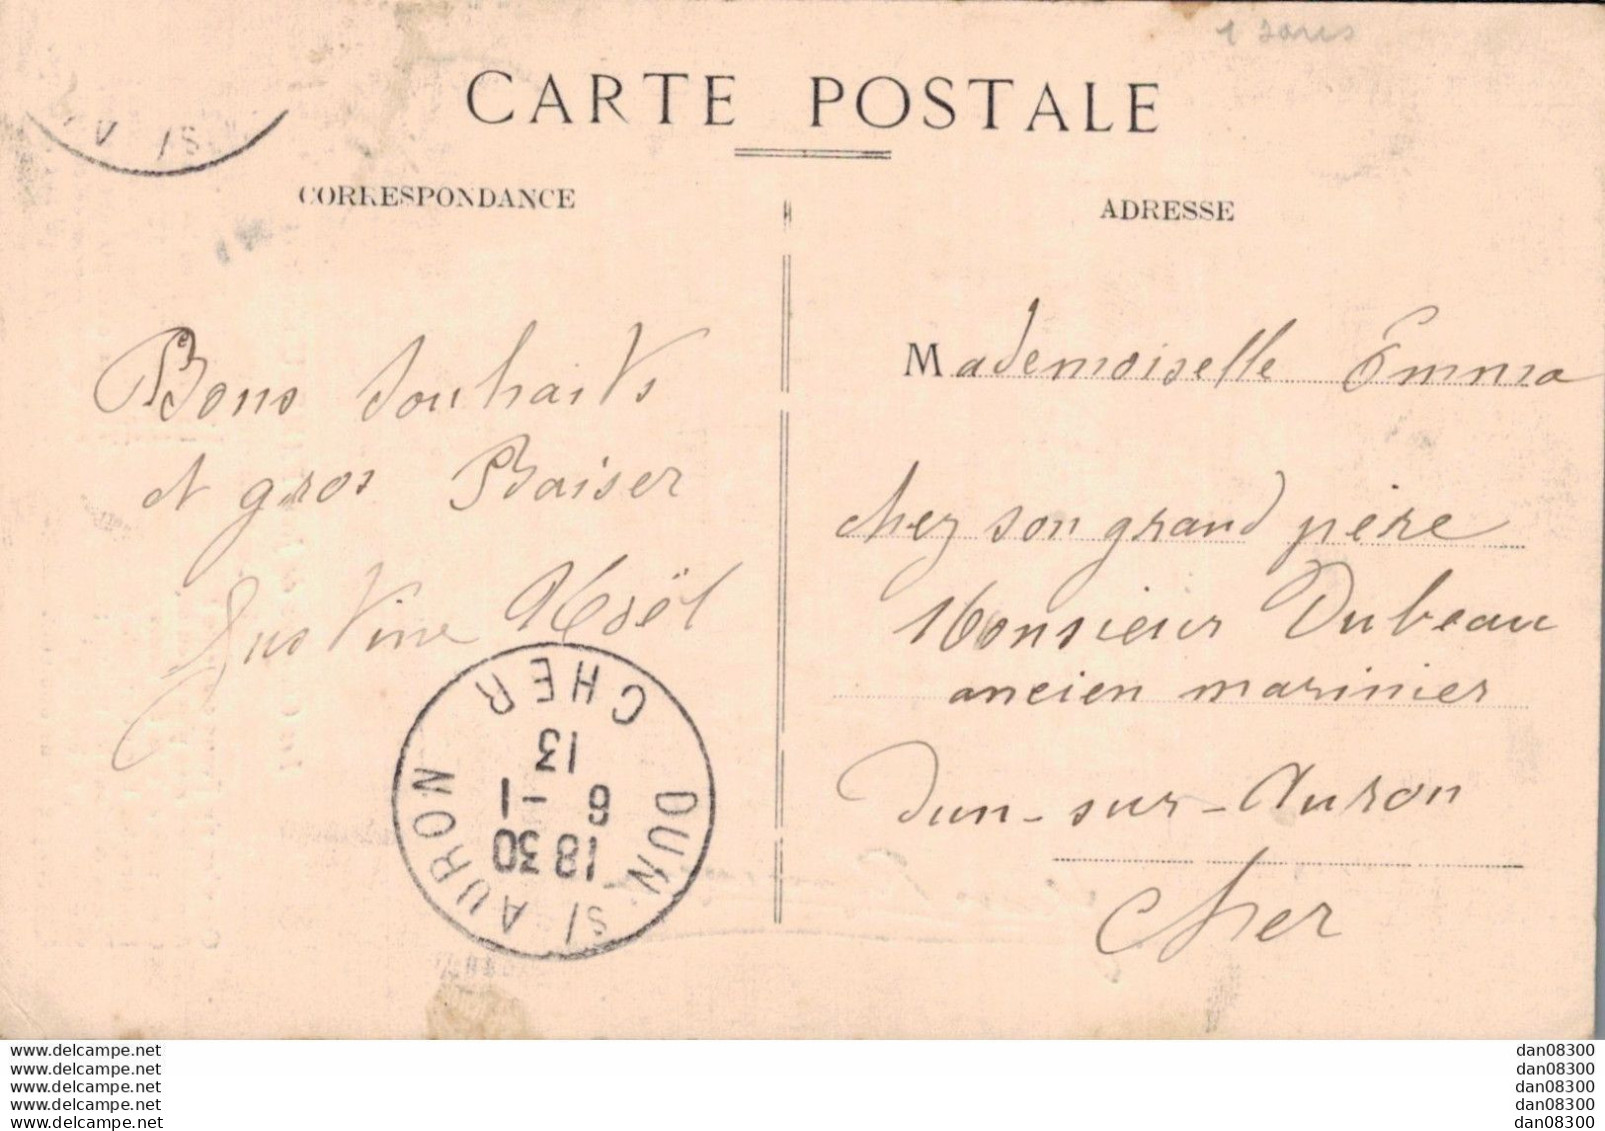 1 sans
CARTE POSTALE
CORRESPONDANCE
ADRESSE
Bons Souhaits
et gros Baiser
Justine Noël
Mademoiselle Emma
chez son grand père
Monsieur Dubeau
ancien marinier
Dun-sur-Auron
Cher
DUN S/ AURON
18 30
6 -1
13
CHER
www.delcampe.net
www.delcampe.net
www.delcampe.net
www.delcampe.net
www.delcampe.net
dan08300
dan08300
dan08300
dan08300
dan08300